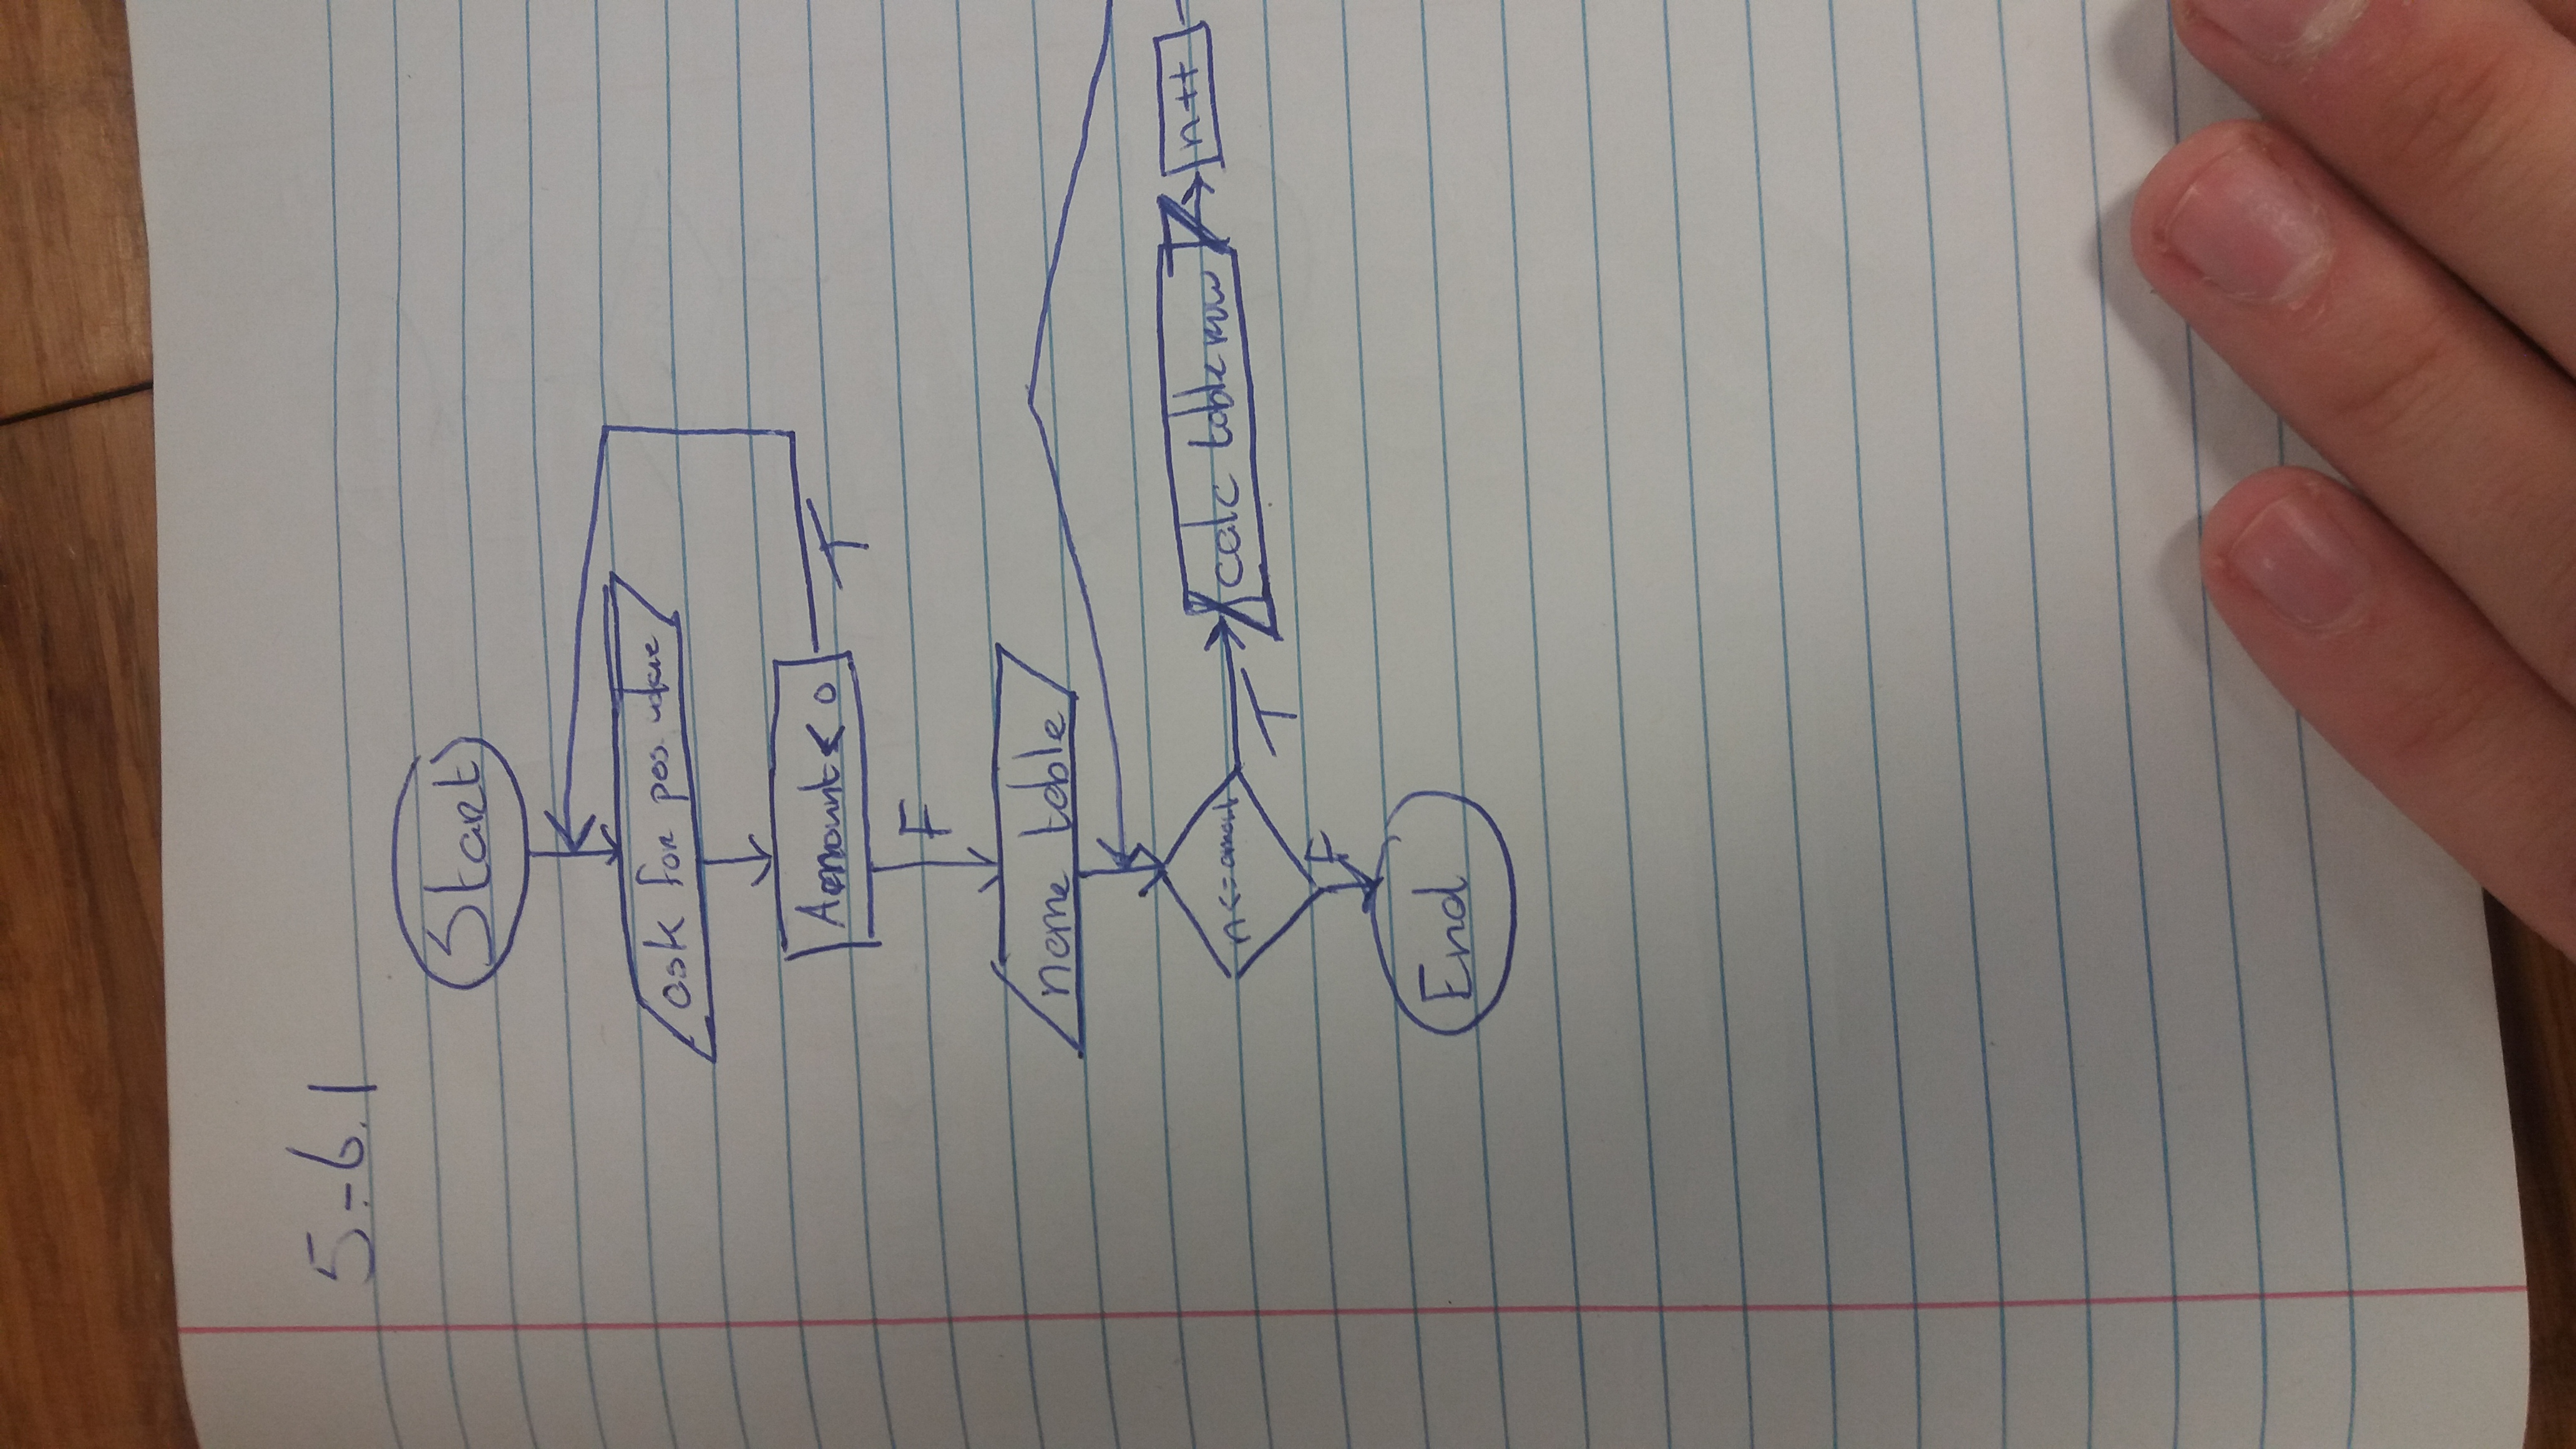 5.-6.1
Start
ask for pos. value
Amount < 0
T
F
name table
n<=amount
T
calc table row
n++
F
End